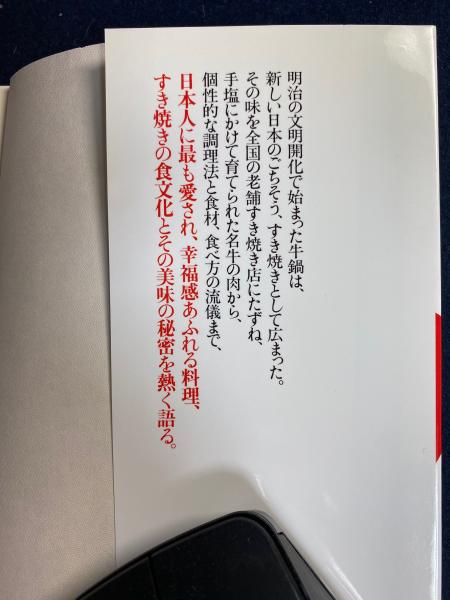 明治の文明開化で始まった牛鍋は、
新しい日本のごちそう、すき焼きとして広まった。
その味を全国の老舗すき焼き店にたずね、
手塩にかけて育てられた名牛の肉から、
個性的な調理法と食材、食べ方の流儀まで、
日本人に最も愛され、幸福感あふれる料理、
すき焼きの食文化とその美味の秘密を熱く語る。